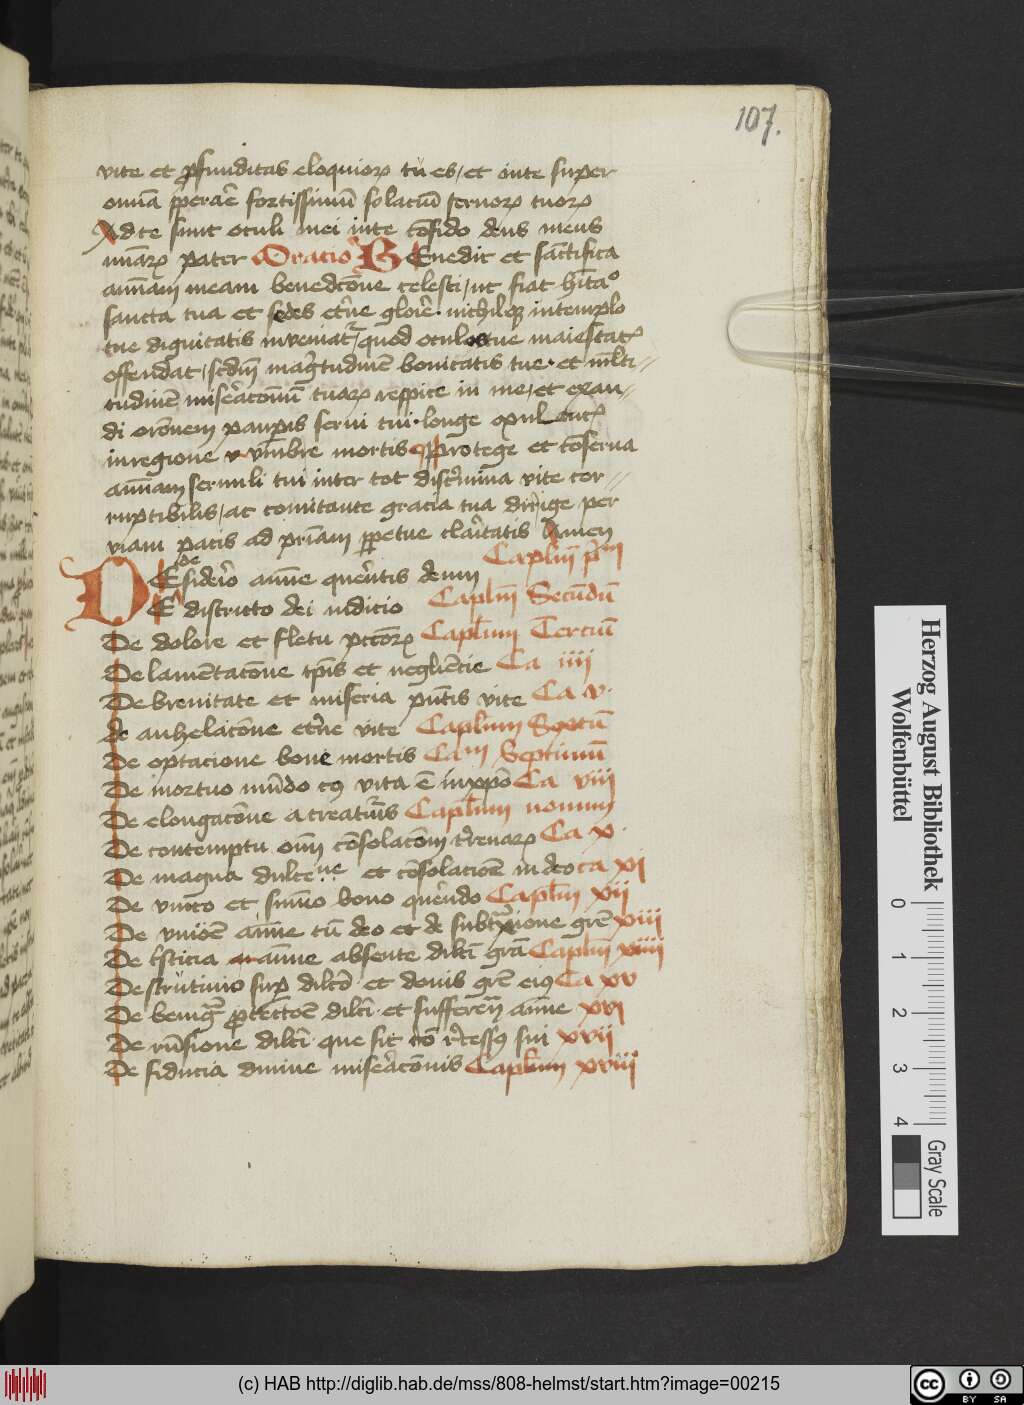 107.
vite et profunditas eloquiorꝫ tu es, et inte super
omnia sperare fortissimū solaciū seruorꝫ tuorꝫ
Ad te sunt oculi mei inte cōfido deus meus
mīarꝫ pater Oratio BEnedic et sāctifica
animam meam benedcōne celesti, ut fiat hītaᵒ
sancta tua et sedes eterne glorie. nichilqꝫ intemplo
tue dignitatis inveniatur, quod oculos tue maiestatꝫ
offendat, scdm magitudinē bonitatis tue. et mlti⸗
tudinē miseracōnū tuarꝫ respice in me, et exau⸗
di orōnem pauperis serui tui. longe
inregione vmbre mortis Protege et cōserua
animam seruuli tui inter tot discrimina vite cor⸗
ruptibilis, ac comitante gracia tua dirige per
viam pacis ad priam perpetue claritatis Amen
DE siderio anime querentis deum Caplm prim
DE districto dei iudicio Caplm Secūdū
De dolore et fletu pctorꝫ Caplm Terciū
De lamētacōne tpis et negligētie Ca iiii
De breuitate et miseria pntis vite Ca v.
de anhelacōne eterne vite Caplum Sextū
De optacione bone mortis Cam Septimū
De mortuo mūdo cꝰ vita ē inxpo Ca viii
De elongacōne a creaturis Caplm nonum
De contemptu omnī cōsolacōnū terrenarꝫ Ca x.
De magna dulcedine et cōsolacionē in deo ca xi
De vnico et sūmo bono querēdo Caplm xii
De vnione anime cū deo et de subtraxione grē xiii
De tristicia anime absente dilcti grā Caplm xiiii
De scrutinio super dilcto et donis grē eiꝰ Ca xv
De benigna protectōe dilcti et sufferen anime xvi
De visione dilcti que sit cō sui xvii
De fiducia diuine miseracōnis Caplum xviii
Herzog August Bibliothek
Wolfenbüttel
0 1 2 3 4
Gray Scale
(c) HAB http://diglib.hab.de/mss/808-helmst/start.htm?image=00215
cc BY SA